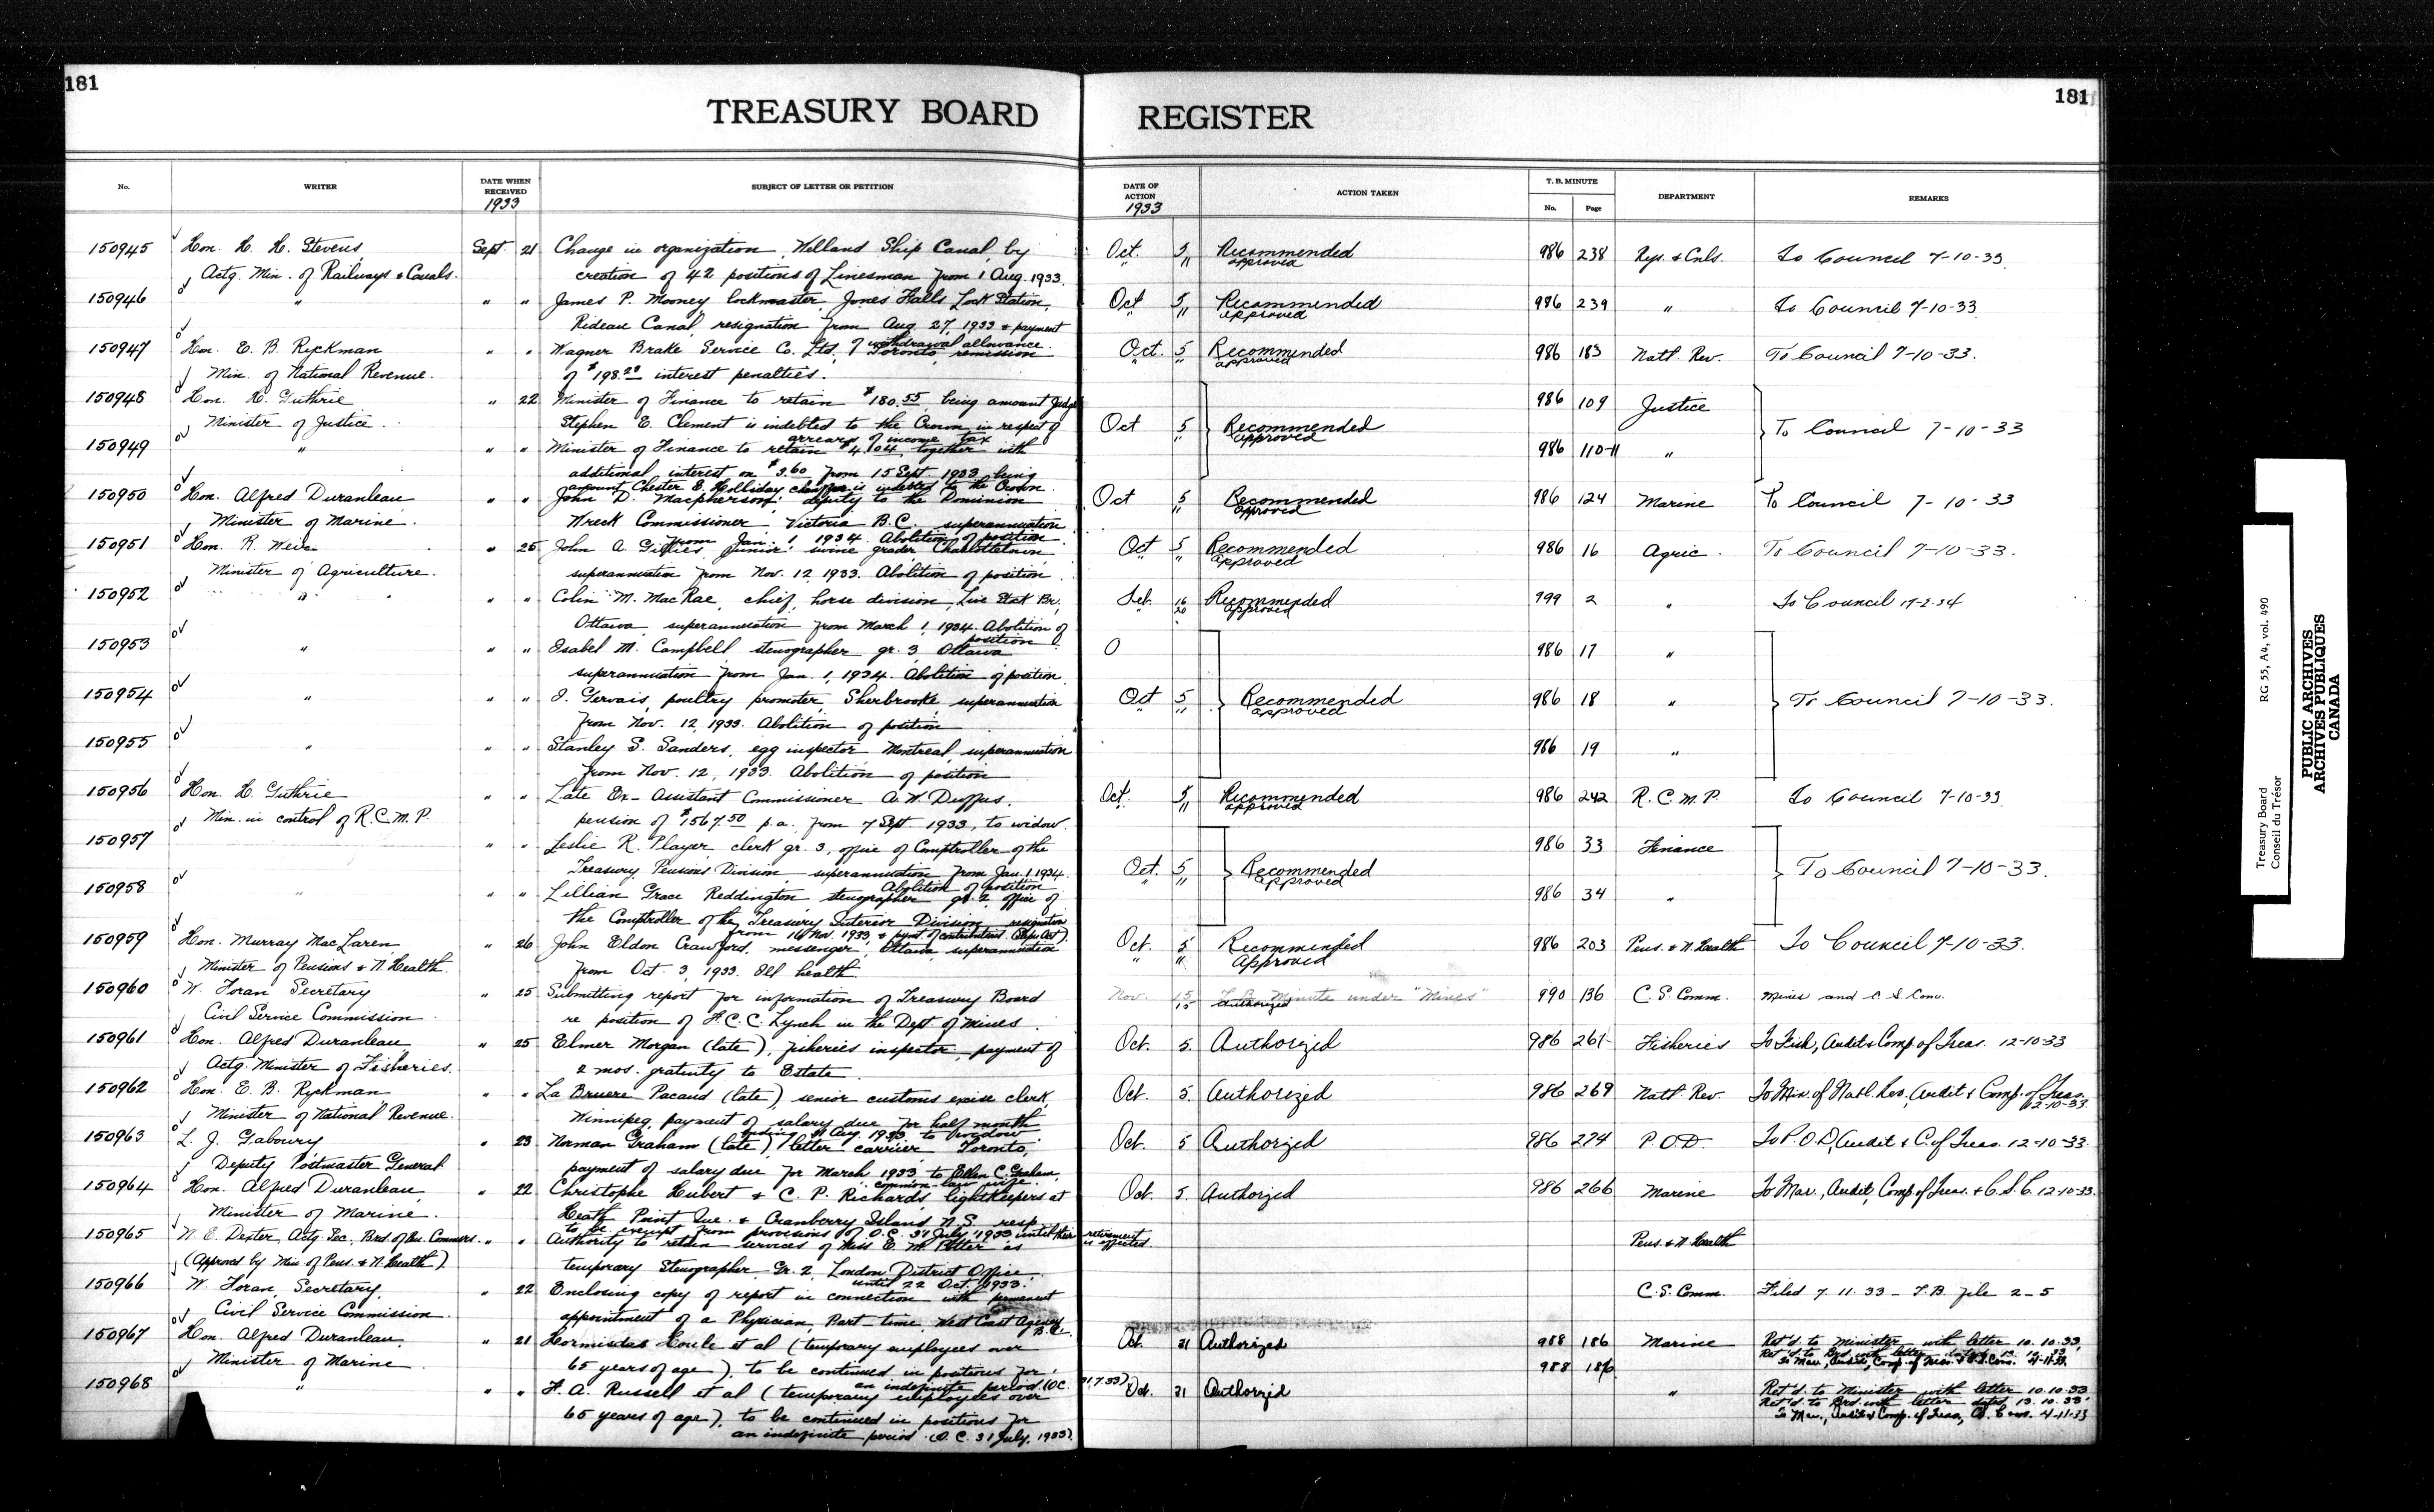 181
181
TREASURY BOARD REGISTER
No. WRITER DATE WHEN RECEIVED 1933 SUBJECT OF LETTER OR PETITION DATE OF ACTION 1933 ACTION TAKEN T. B. MINUTE No. Page DEPARTMENT REMARKS
150945 Hon. H. H. Stevens, Sept. 21 Change in organization, Welland Ship Canal, by Oct. 5 Recommended 986 238 Rys. & Cnls. To Council 7-10-33.
Actg. Min. of Railways & Canals. creation of 42 positions of Linesman from 1 Aug. 1933. " " approved
150946 " " " James P. Mooney lockmaster, Jones Falls Lock Station, Oct 5 Recommended 986 239 " To Council 7-10-33
Rideau Canal, resignation from Aug 27, 1933 & payment " " approved
of withdrawal allowance.
150947 Hon. E. B. Ryckman " " Wagner Brake Service Co. Ltd. Toronto, remission Oct. 5 Recommended 986 183 Natl. Rev. To Council 7-10-33.
Min. of National Revenue. of $198.28 interest penalties. " " approved
150948 Hon. H. Guthrie " 22 Minister of Finance to retain $180.55 being amount Judge 986 109 Justice
Minister of Justice. Stephen E. Clement is indebted to the Crown in respect of Oct 5 Recommended To Council 7-10-33
arrears of income tax " approved
150949 " " " Minister of Finance to retain $4.04, together with 986 110-11 "
additional interest on $3.60 from 15 Sept. 1933 being
amount Chester E. Holliday, is indebted to the Crown.
150950 Hon. Alfred Duranleau " " John D. Macpherson, deputy to the Dominion Oct 5 Recommended 986 124 Marine To Council 7-10-33
Minister of Marine. Wreck Commissioner, Victoria B.C. superannuation " approved
from Jan. 1 1934. Abolition of position
150951 Hon. R. Weir " 25 John A. Gillies, junior swine grader Charlottetown Oct 5 Recommended 986 16 Agric. To Council 7-10-33.
Minister of Agriculture. superannuation from Nov. 12, 1933. Abolition of position. " " approved
150952 " " " Colin M. MacRae, chief, horse division, Live Stock Br. Feb. 16 Recommended 799 2 " To Council 17-2-34
Ottawa, superannuation from March 1, 1934. Abolition of 20 approved
position
150953 " " " Isabel M. Campbell stenographer gr. 3 Ottawa O 986 17 "
superannuation from Jan. 1, 1934. Abolition of position.
150954 " " " J. Gervais, poultry promoter, Sherbrooke superannuation Oct 5 Recommended 986 18 " To Council 7-10-33.
from Nov. 12, 1933. Abolition of position " approved
150955 " " " Stanley S. Sanders, egg inspector Montreal, superannuation 986 19 "
from Nov. 12, 1933. Abolition of position
150956 Hon. H. Guthrie " " Late Ex-Assistant Commissioner A. W. Duffus, Oct. 5 Recommended 986 242 R.C.M.P. To Council 7-10-33
Min. in control of R.C.M.P. pension of $1567.50 p.a. from 7 Sept. 1933, to widow. " approved
150957 " " Leslie R. Player, clerk gr. 3, office of Comptroller of the 986 33 Finance
Treasury, Pensions Division, superannuation from Jan. 1, 1934. Oct. 5 Recommended To Council 7-10-33.
Abolition of position " " approved
150958 " " " Lillian Grace Reddington stenographer gr. 2 office of 986 34 "
the Comptroller of the Treasury Interior Division resignation
from 16 Nov. 1933, & pymt. of contributions
150959 Hon. Murray MacLaren " 26 John Eldon Crawford, messenger, Ottawa superannuation Oct. 5 Recommended 986 203 Pens. & N. Health To Council 7-10-33.
Minister of Pensions & N. Health. from Oct. 3, 1933. Ill health. " " Approved
150960 W. Foran Secretary " 25 Submitting report for information of Treasury Board Nov. 15 Minute under "Mines" 990 136 C.S. Comm. Mines and C.S. Com.
Civil Service Commission. re position of F.C.C. Lynch in the Dept of Mines. 15 authorized
150961 Hon. Alfred Duranleau " 25 Elmer Morgan (late), fisheries inspector, payment of Oct. 5. Authorized 986 261 Fisheries To Fish, Audit & Comp of Treas. 12-10-33
Actg. Minister of Fisheries. 2 mos. gratuity to Estate.
150962 Hon. E. B. Ryckman " " La Bruere Pacaud (late), senior customs excise clerk, Oct. 5. Authorized 986 269 Natl. Rev. To Min. of Natl. Rev., Audit & Comp. of Treas.
Minister of National Revenue. Winnipeg, payment of salary due for half month 12-10-33.
Aug. 1933, to widow.
150963 L. J. Gaboury " 23 Norman Graham (late), letter carrier Toronto, Oct. 5 Authorized 986 274 P.O.D. To P.O.D, Audit & C. of Treas. 12-10-33.
Deputy Postmaster General payment of salary due for March 1933 to Ellen C. Graham,
common-law wife.
150964 Hon. Alfred Duranleau, " 22 Christophe Hubert & C. P. Richards, lightkeepers at Oct. 5. Authorized 986 266 Marine To Mar., Audit, Comp. of Treas. & C.S.C. 12-10-33.
Minister of Marine. Heath Point Que. & Cranberry Island N.S. resp.
to be exempt from provisions of O.C. 31 July 1933 until their retirement is effected.
150965 N. E. Dexter, Actg. Sec., Brd. of Pen. Commrs. " " Authority to retain services of Miss E. M. Potter as Pens. & N. Health
(Approved by Min of Pens. & N. Health). temporary Stenographer, Gr. 2, London District Office
until 22 Oct. 1933.
150966 W. Foran, Secretary, " 22 Enclosing copy of report in connection with permanent C.S. Comm. Filed 7.11.33 - T.B. file 2-5
Civil Service Commission. appointment of a Physician, Part time, West Coast Agency
B.C.
150967 Hon. Alfred Duranleau, " 21 Hormisdas Houle et al (temporary employees over Oct. 31 Authorized 988 186 Marine Ret'd. to Minister with letter 10.10.33,
Minister of Marine. 65 years of age), to be continued in positions for 988 186 Ret'd. to Brd. with letter dated 13.10.33
an indefinite period (OC. 31.7.33) To Mar., Audit, Comp. of Treas. & C.S. Com. 4-11-33.
150968 " " " F. A. Russell et al (temporary employees over Oct. 31 Authorized " Ret'd. to Minister with letter 10.10.33
65 years of age), to be continued in positions for Ret'd. to Brd. with letter dated 13.10.33
an indefinite period. (O.C. 31 July, 1933). To Mar., Audit & Comp. of Treas, 4-11-33
Treasury Board RG 55, A4, vol. 490
Conseil du Trésor
PUBLIC ARCHIVES
ARCHIVES PUBLIQUES
CANADA